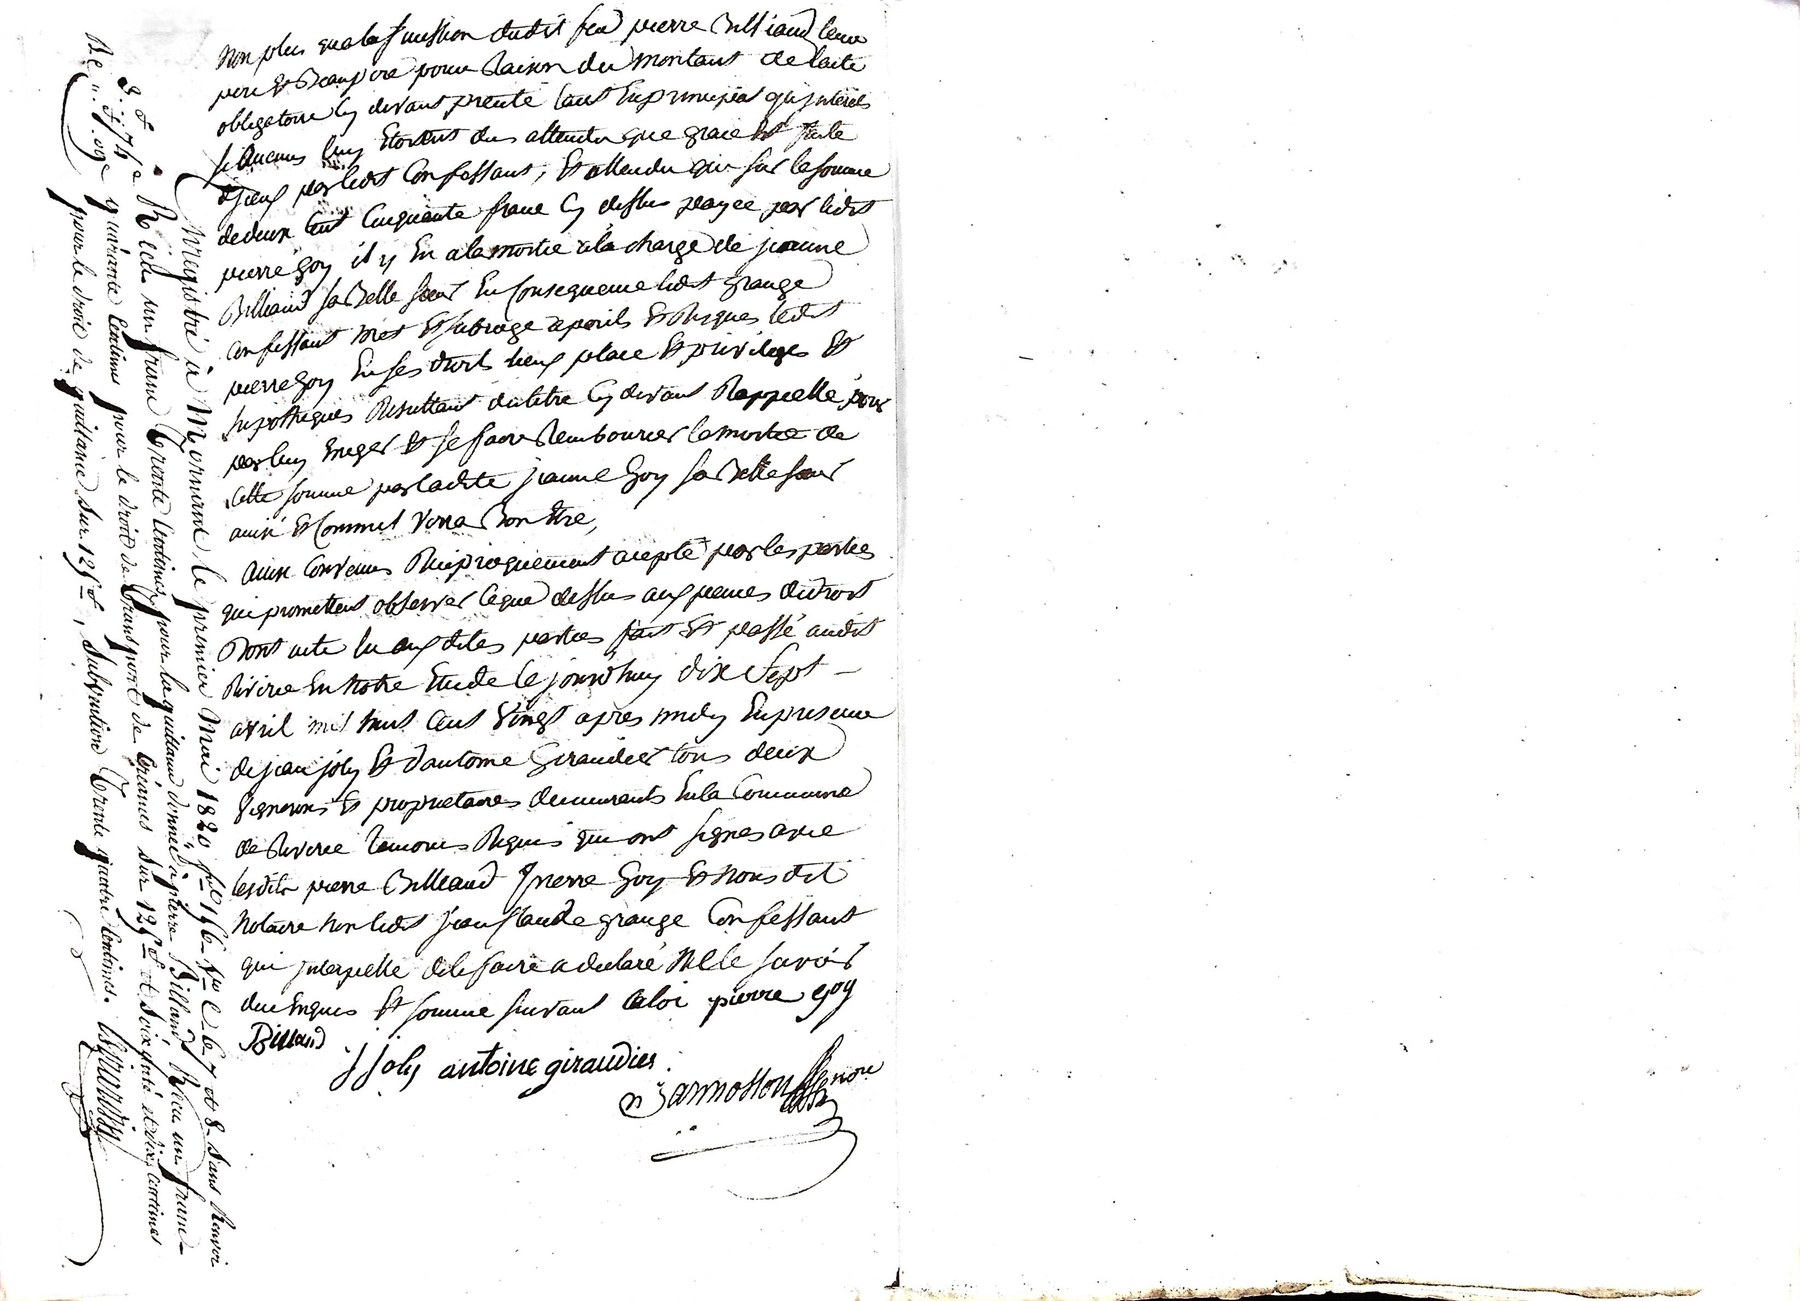 non plus qu'a la succession dudit feu pierre Billiaud leur
pere et Beaupere pour Raison du montant de lacte
obligatoire cy devant precité tant En principal qu'jnterets
si Aucuns luy Etoient dus attendu que grace Est faite
par ledit Confessant, Et attendu que sur la somme
de deux Cent Cinquante franc Cy dessus payée par ledit
pierre Goy il y En a la moitié a la charge de jeanne
Billiaud sa Belle soeur En Consequence ledit grange
Confessant met Et subroge a perils Et Risques ledit
pierre Goy En ses droits lieux place Et privileges Et
hypotheques Resultant du titre Cy devant Rappellé pour
par luy Exiger Et se faire Rembourcer la moitié de
Cette somme par ladite jeanne Goy sa Belle soeur
ainsi Et Comme verra Bon Etre,
Ainsi Convenu Reciproquement accepté par les parties
qui promettent observer Ceque dessus aux peines du droit
Dont acte lu aux dites parties fait Et passé audit
Riverie En notre Etude le jourd'huy dix Sept
avril mil huit Cent Vingt apres midy En presence
de jean joly Et d'antoine Giraudier tous deux
Vignerons Et proprietaires demeurants En la Commune
de Riverie temoins Requis qui ont signes avec
lesdits pierre Billiaud pierre Goy Et Nous dit
Notaire non ledit jean Claude grange Confessant
qui jnterpellé de le faire a declaré Ne le savoir
du Enquis Et sommé suivant la loi pierre goy
Billiaud
j joly antoine giraudier
Enregistré à Mornant le premier Mai 1820 f° 146 V° C. 6, 7 et 8 sans Renvoi
Reçu un franc trente Centimes pour la quittance donnée à pierre Billiaud Reçu un franc
quarante Centimes pour le droit de transport de Créances sur 125 f et soixante et dix Centimes
pour le droit de quittance sur 125 f, subvention trente quatre Centimes.